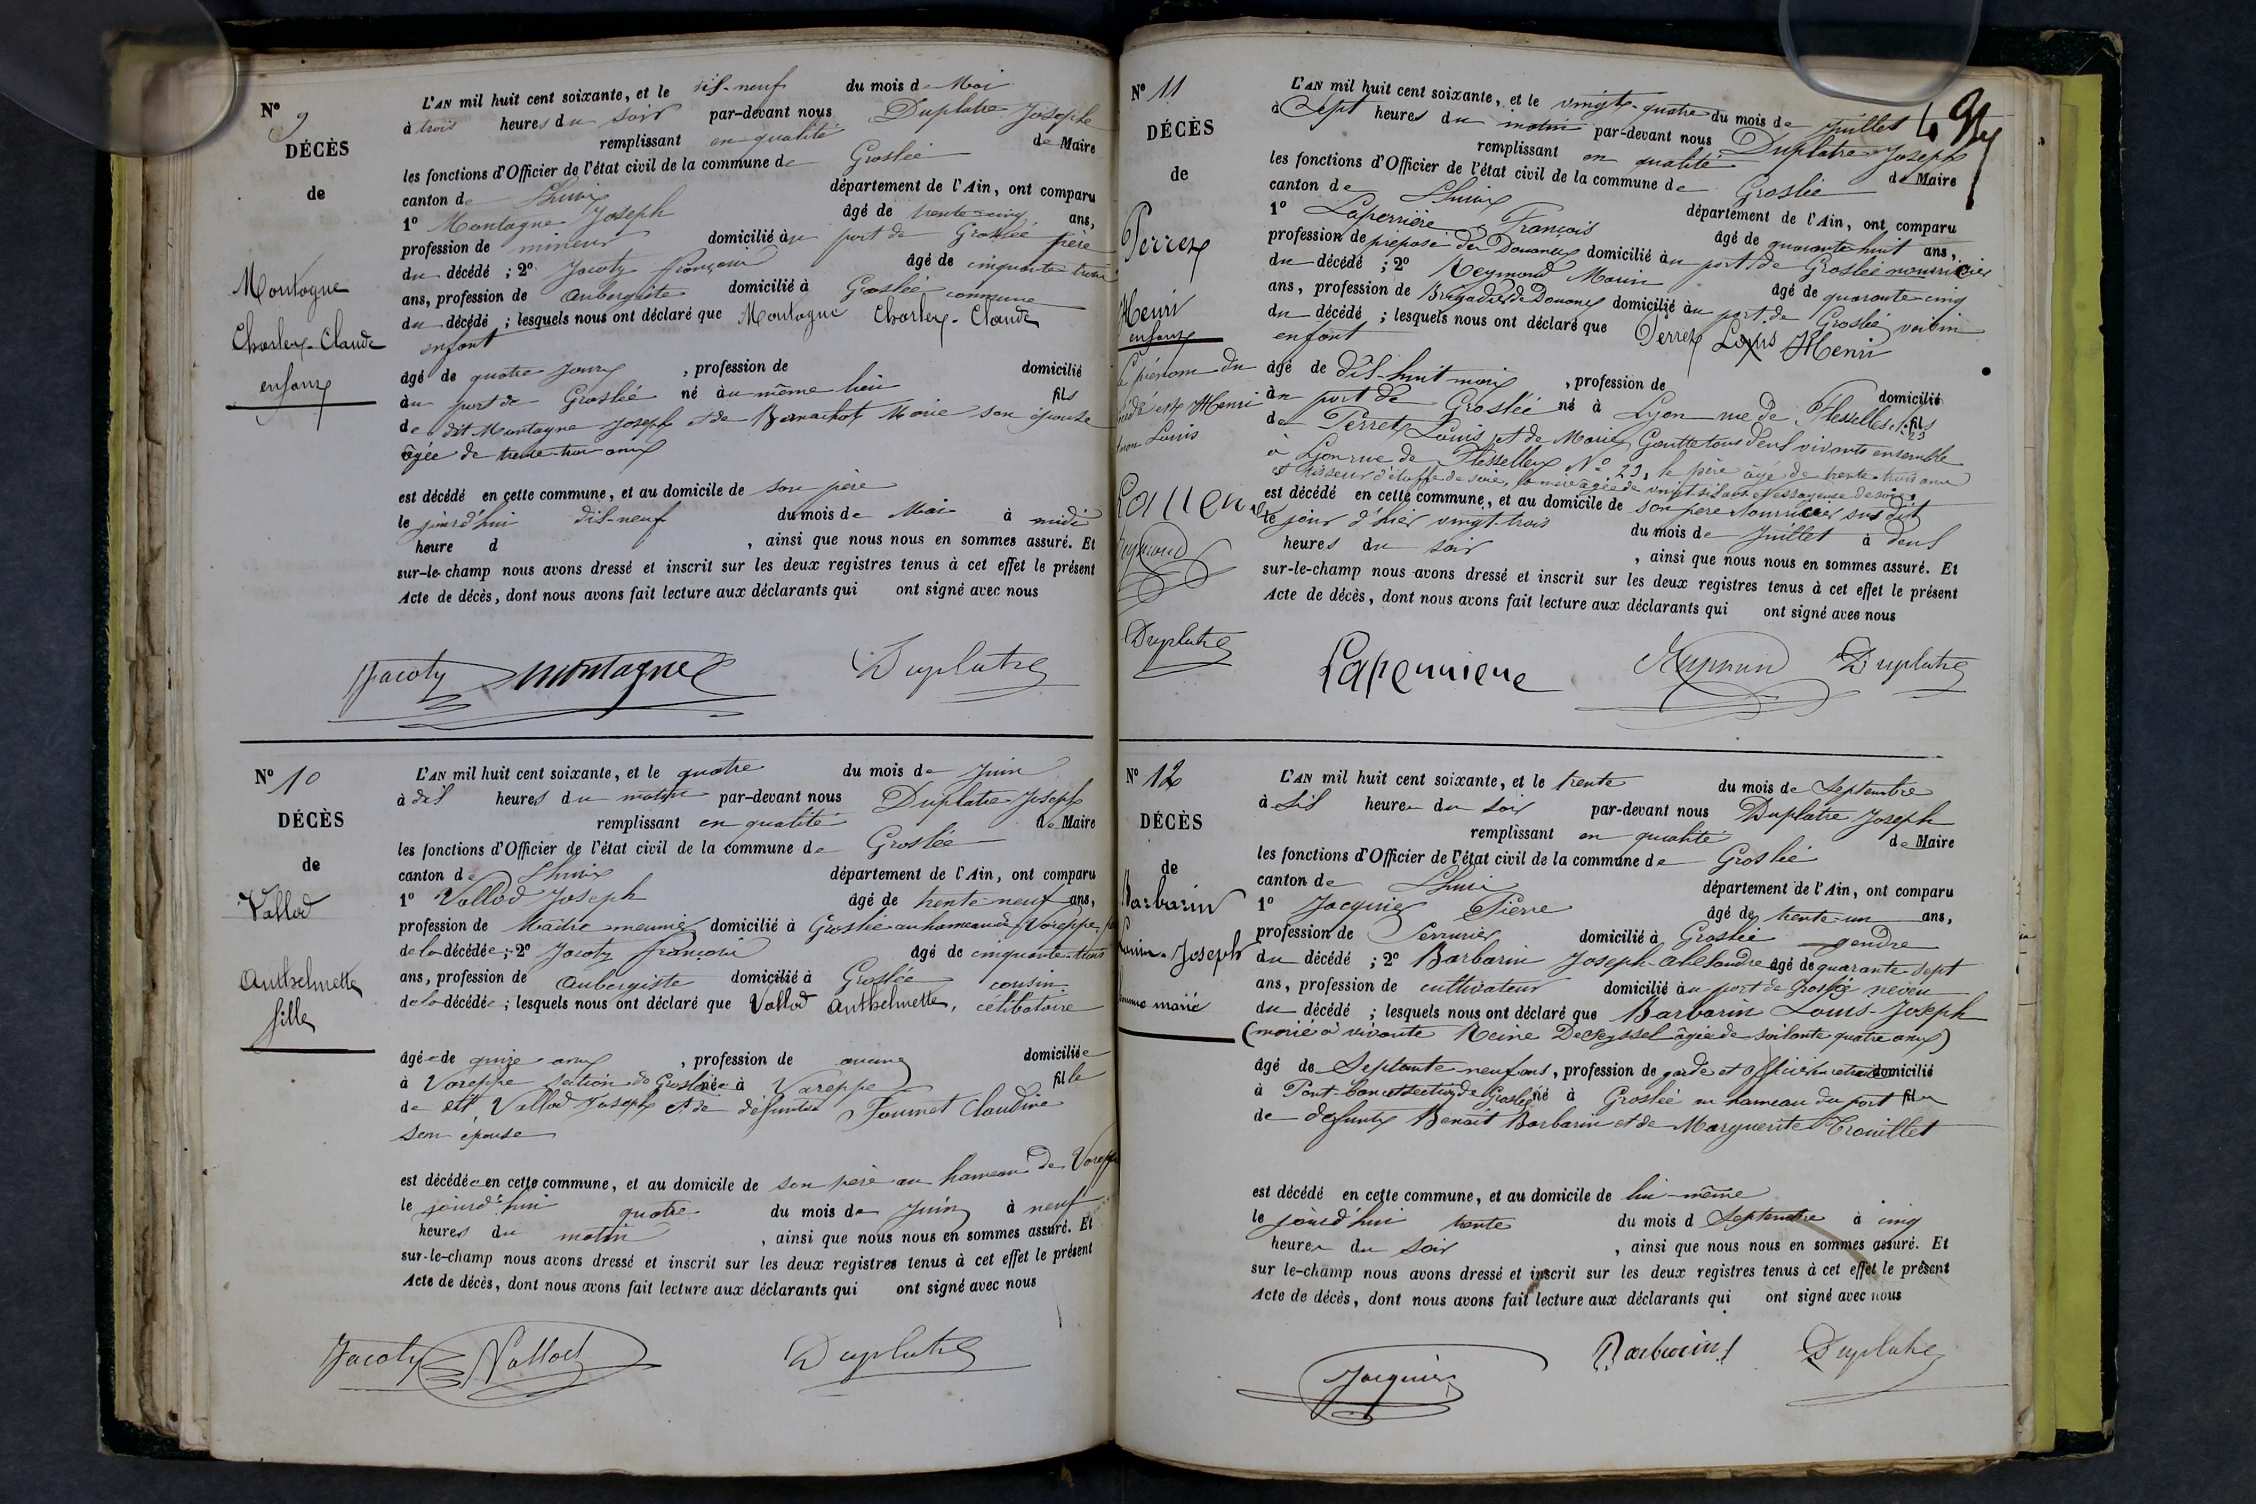 N° 9
DÉCÈS
de
Montagne
Charles-Claude
enfant
L'AN mil huit cent soixante, et le dix-neuf du mois de Mai
à trois heures du soir par-devant nous Duplatre Joseph
remplissant en qualité de Maire
les fonctions d'Officier de l'état civil de la commune de Groslée
canton de Lhuix département de l'Ain, ont comparu
1° Montagne Joseph âgé de trente-cinq ans,
profession de mineur domicilié au port de Groslée père
du décédé ; 2° Jacoty françois âgé de cinquante trois
ans, profession de Aubergiste domicilié à Groslée commune
du décédé ; lesquels nous ont déclaré que Montagne Charles-Claude
enfant
âgé de quatre jours, profession de domicilié
au port de Groslée né au même lieu fils
de dit Montagne Joseph et de Marie son épouse
âgée de trente-trois ans
est décédé en cette commune, et au domicile de son père
le jourd'hui dix-neuf du mois de Mai à midi
heure d , ainsi que nous nous en sommes assuré. Et
sur-le-champ nous avons dressé et inscrit sur les deux registres tenus à cet effet le présent
Acte de décès, dont nous avons fait lecture aux déclarants qui ont signé avec nous
Jacoty montagne Duplatre
N° 10
DÉCÈS
de
Vallod
Anthelmette
fille
L'AN mil huit cent soixante, et le quatre du mois de Juin
à dix heures du matin par-devant nous Duplatre Joseph
remplissant en qualité de Maire
les fonctions d'Officier de l'état civil de la commune de Groslée
canton de Lhuix département de l'Ain, ont comparu
1° Vallod Joseph âgé de trente-neuf ans,
profession de Maître meunier domicilié à Groslée au hameau de Voreppe,
de la décédée ; 2° Jacoty françois âgé de cinquante-trois
ans, profession de Aubergiste domicilié à Groslée cousin
de la décédée ; lesquels nous ont déclaré que Vallod Anthelmette, célibataire
âgée de quinze ans, profession de aucune domiciliée
à Voreppe section de Groslée née à Voreppe fille
de dit Vallod Joseph et de défunte Fournet Claudine
son épouse
est décédée en cette commune, et au domicile de son père au hameau de Voreppe
le jourd'hui quatre du mois de Juin à neuf
heures du matin , ainsi que nous nous en sommes assuré. Et
sur-le-champ nous avons dressé et inscrit sur les deux registres tenus à cet effet le présent
Acte de décès, dont nous avons fait lecture aux déclarants qui ont signé avec nous
Jacoty Vallod Duplatre
N° 11
DÉCÈS
de
Perret
Henri
enfant
Le prénom du
décédé est Henri
non Louis
Reymond
Duplatre
L'AN mil huit cent soixante, et le vingt-quatre du mois de Juillet
à Sept heures du matin par-devant nous Duplatre Joseph
remplissant en qualité de Maire
les fonctions d'Officier de l'état civil de la commune de Groslée
canton de Lhuix département de l'Ain, ont comparu
1° Laperrière François âgé de quarante huit ans,
profession de préposé des Douanes domicilié au port de Groslée nourricier
du décédé ; 2° Reymond Marin âgé de quarante-cinq
ans, profession de Brigadier de Douanes domicilié au port de Groslée voisin
du décédé ; lesquels nous ont déclaré que Perret Louis Henri
enfant
âgé de dix-huit mois, profession de domicilié
au port de Groslée né à Lyon rue de Flesselles, 23 fils
de Perret Louis et de Marie Goutte tous deux vivants ensemble
à Lyon rue de Flesselles N° 23, le père âgé de trente-trois ans
et tisseur d'étoffe de soie, la mère âgée de vingt six ans et de soie.
est décédé en cette commune, et au domicile de son père nourricier sus dit
le jour d'hier vingt-trois du mois de Juillet à deux
heures du soir , ainsi que nous nous en sommes assuré. Et
sur-le-champ nous avons dressé et inscrit sur les deux registres tenus à cet effet le présent
Acte de décès, dont nous avons fait lecture aux déclarants qui ont signé avec nous
Laperriere Reymond Duplatre
N° 12
DÉCÈS
de
Barbarin
Louis-Joseph
homme marié
L'AN mil huit cent soixante, et le trente du mois de Septembre
à Six heures du soir par-devant nous Duplatre Joseph
remplissant en qualité de Maire
les fonctions d'Officier de l'état civil de la commune de Groslée
canton de Lhuix département de l'Ain, ont comparu
1° Jacquier Pierre âgé de trente-un ans,
profession de Serrurier domicilié à Groslée gendre
du décédé ; 2° Barbarin Joseph-Alexandre âgé de quarante sept
ans, profession de cultivateur domicilié au port de Groslée neveu
du décédé ; lesquels nous ont déclaré que Barbarin Louis-Joseph
(marié à vivante Reine DeSeyssel âgée de soixante quatre ans)
âgé de Septante neuf ans, profession de garde et officier en retraite domicilié
à section de Groslée né à Groslée au hameau du port fils
de défunts Benoit Barbarin et de Marguerite Trouillet
est décédé en cette commune, et au domicile de lui-même
le jourd'hui trente du mois d Septembre à cinq
heures du soir , ainsi que nous nous en sommes assuré. Et
sur le-champ nous avons dressé et inscrit sur les deux registres tenus à cet effet le présent
Acte de décès, dont nous avons fait lecture aux déclarants qui ont signé avec nous
Jacquier Barbarin Duplatre